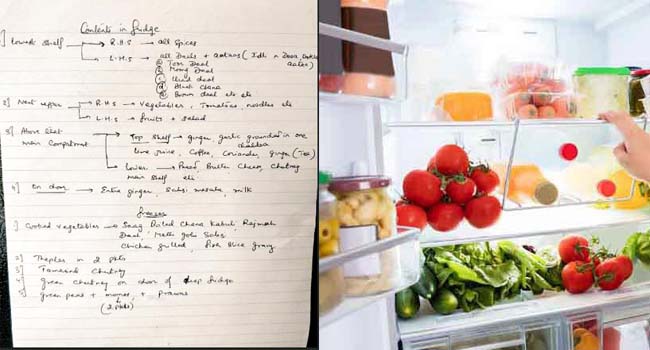 Contents in fridge
1) lowest shelf → R.H.S → all spices
→ L.H.S → all Dals + aatas (Idli n Dosa
① Toor Daal
② Moong Daal
③ Urad daal
④ Black Chana
⑤ Brown daal etc etc
2) Next upper → R.H.S → vegetables, Tomatoes, noodles etc
→ L.H.S → fruits + salad
3) Above that main Compartment → Top shelf → ginger, garlic grounded in one
lime juice, Coffee, Coriander, Ginger (Tea)
→ lower main shelf → Bread Butter Cheese, Chutney
etc.
4) On door → Entire ginger, Sabzi masala, milk
Freezer
1) Cooked vegetables → Saag Boiled Chana Kabuli Rajmah
Daal, Methi
Chicken grilled, Fish slice gravy
2) Theplas in 2 pkts
3) Tamarind Chutney
4) green Chutney on door of deep fridge
5) green peas + momos + prawns
(2 pkts)